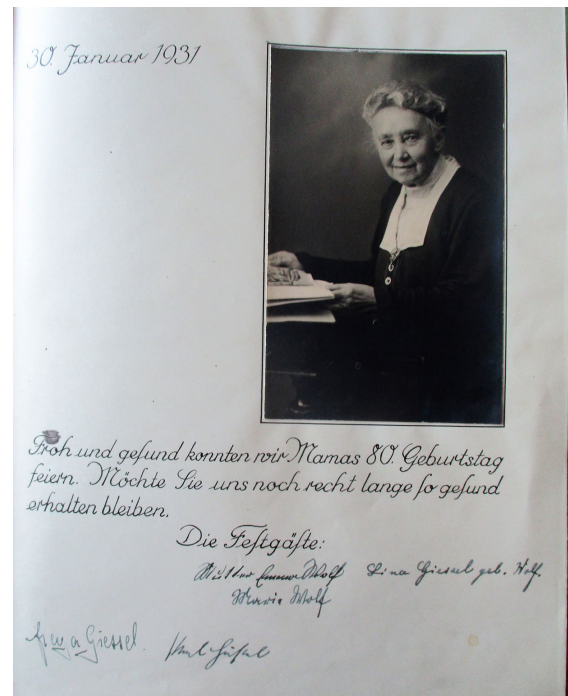 30. Januar 1931
Froh und gesund konnten wir Mamas 80. Geburtstag
feiern. Möchte Sie uns noch recht lange so gesund
erhalten bleiben.
Die Festgäste:
Mutter Emma Wolf Lina Giessel geb. Wolf.
Marie Wolf
Giessel.